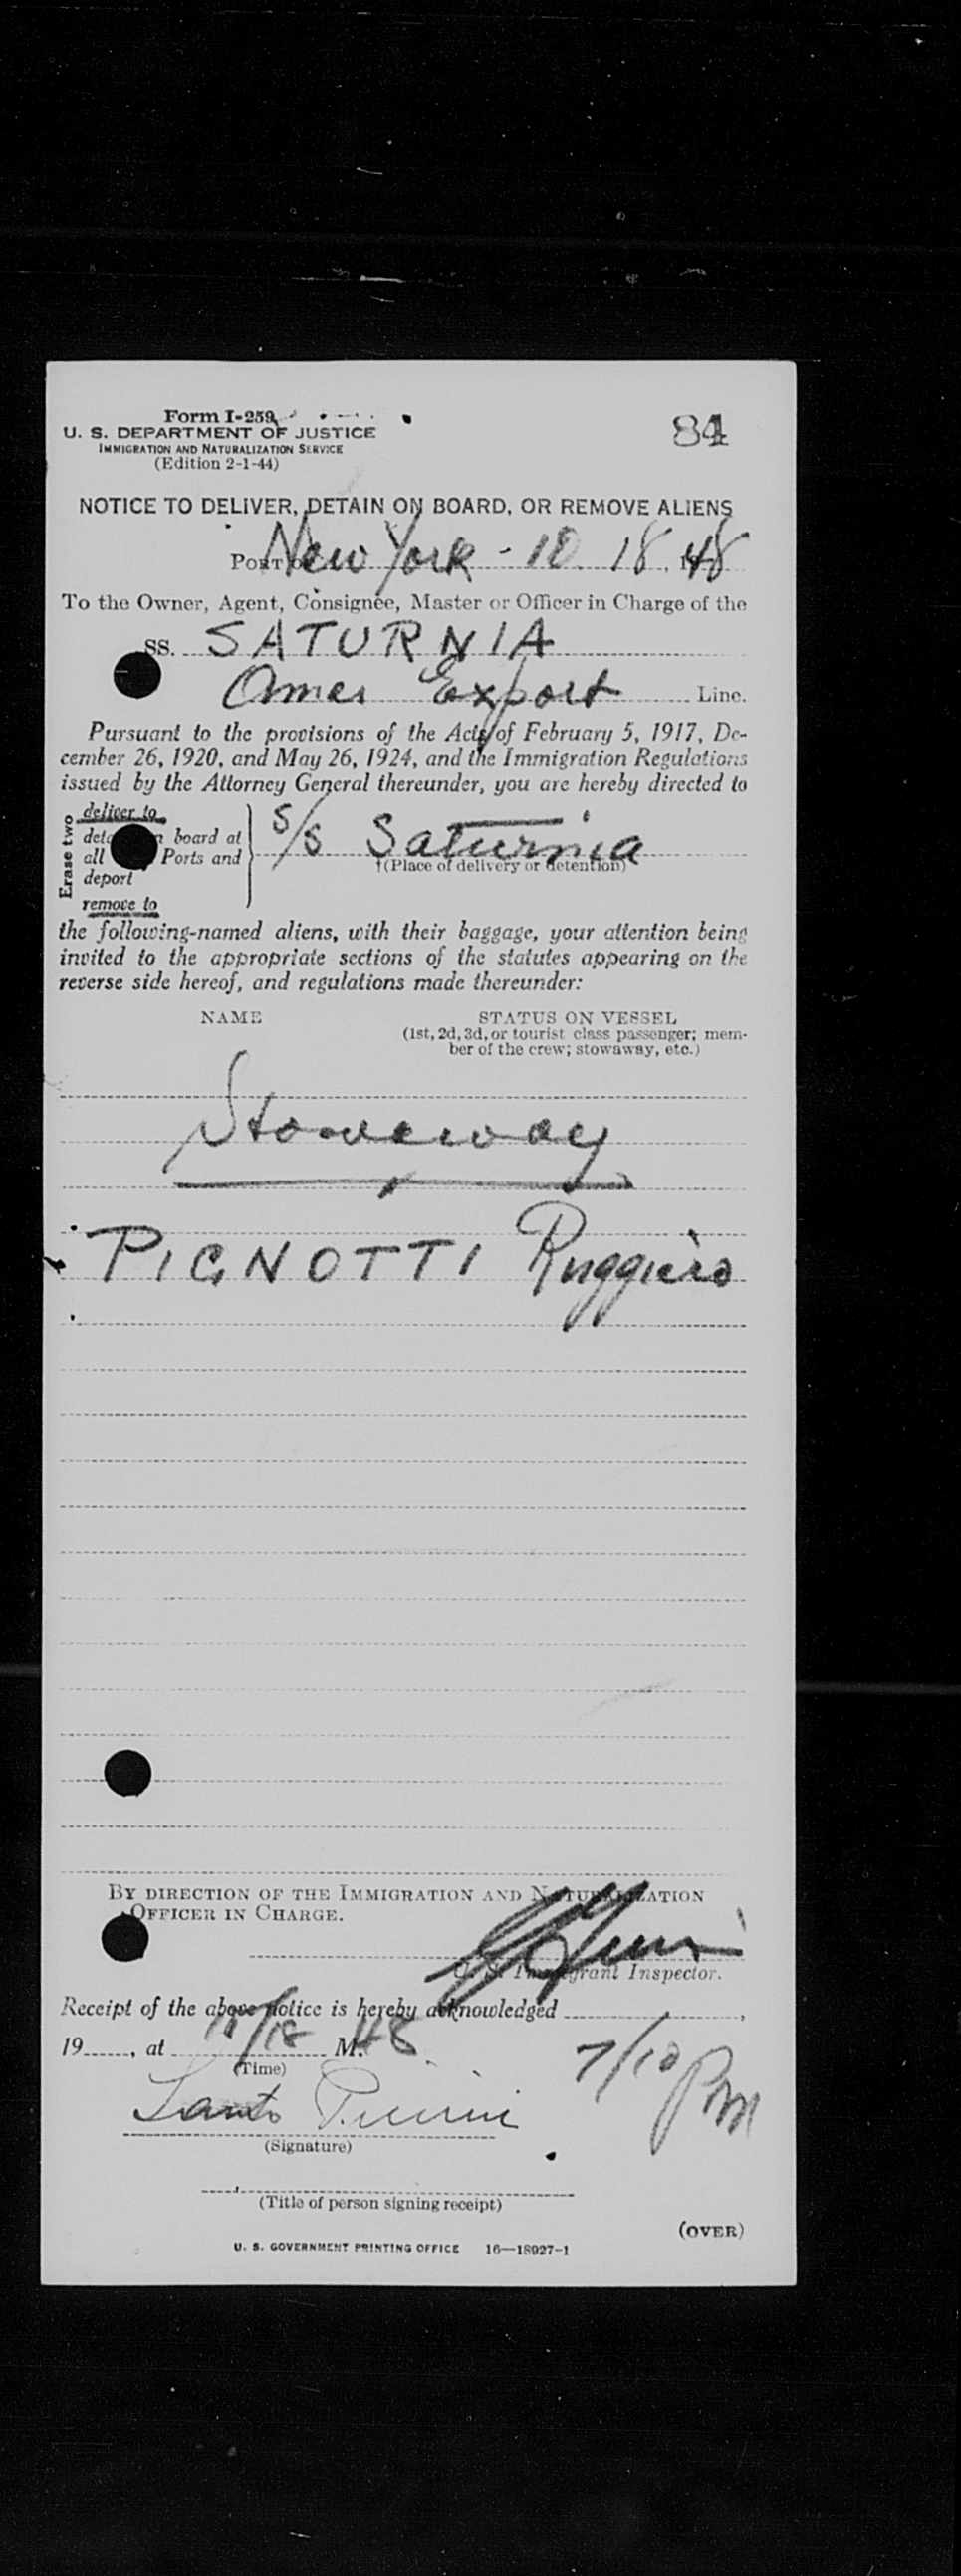 Form I-259
84
U. S. DEPARTMENT OF JUSTICE
IMMIGRATION AND NATURALIZATION SERVICE
(Edition 2-1-44)
NOTICE TO DELIVER, DETAIN ON BOARD, OR REMOVE ALIENS
PORT OF New York - 10 18, 1948
To the Owner, Agent, Consignee, Master or Officer in Charge of the
SS. SATURNIA
Amer Export Line.
Pursuant to the provisions of the Acts of February 5, 1917, De-
cember 26, 1920, and May 26, 1924, and the Immigration Regulations
issued by the Attorney General thereunder, you are hereby directed to
Erase two
deliver to
board at
all Ports and
deport
remove to
S/S Saturnia
†(Place of delivery or detention)
the following-named aliens, with their baggage, your attention being
invited to the appropriate sections of the statutes appearing on the
reverse side hereof, and regulations made thereunder:
NAME STATUS ON VESSEL
(1st, 2d, 3d, or tourist class passenger; mem-
ber of the crew; stowaway, etc.)
Stowaway
PIGNOTTI Ruggiero
BY DIRECTION OF THE IMMIGRATION AND NATURALIZATION
OFFICER IN CHARGE.
U. S. Immigrant Inspector.
Receipt of the above notice is hereby acknowledged ,
19 , at 10/18 M. 48
7/10 PM
(Time)
Santo
(Signature)
(Title of person signing receipt)
(OVER)
U. S. GOVERNMENT PRINTING OFFICE 16—18927-1